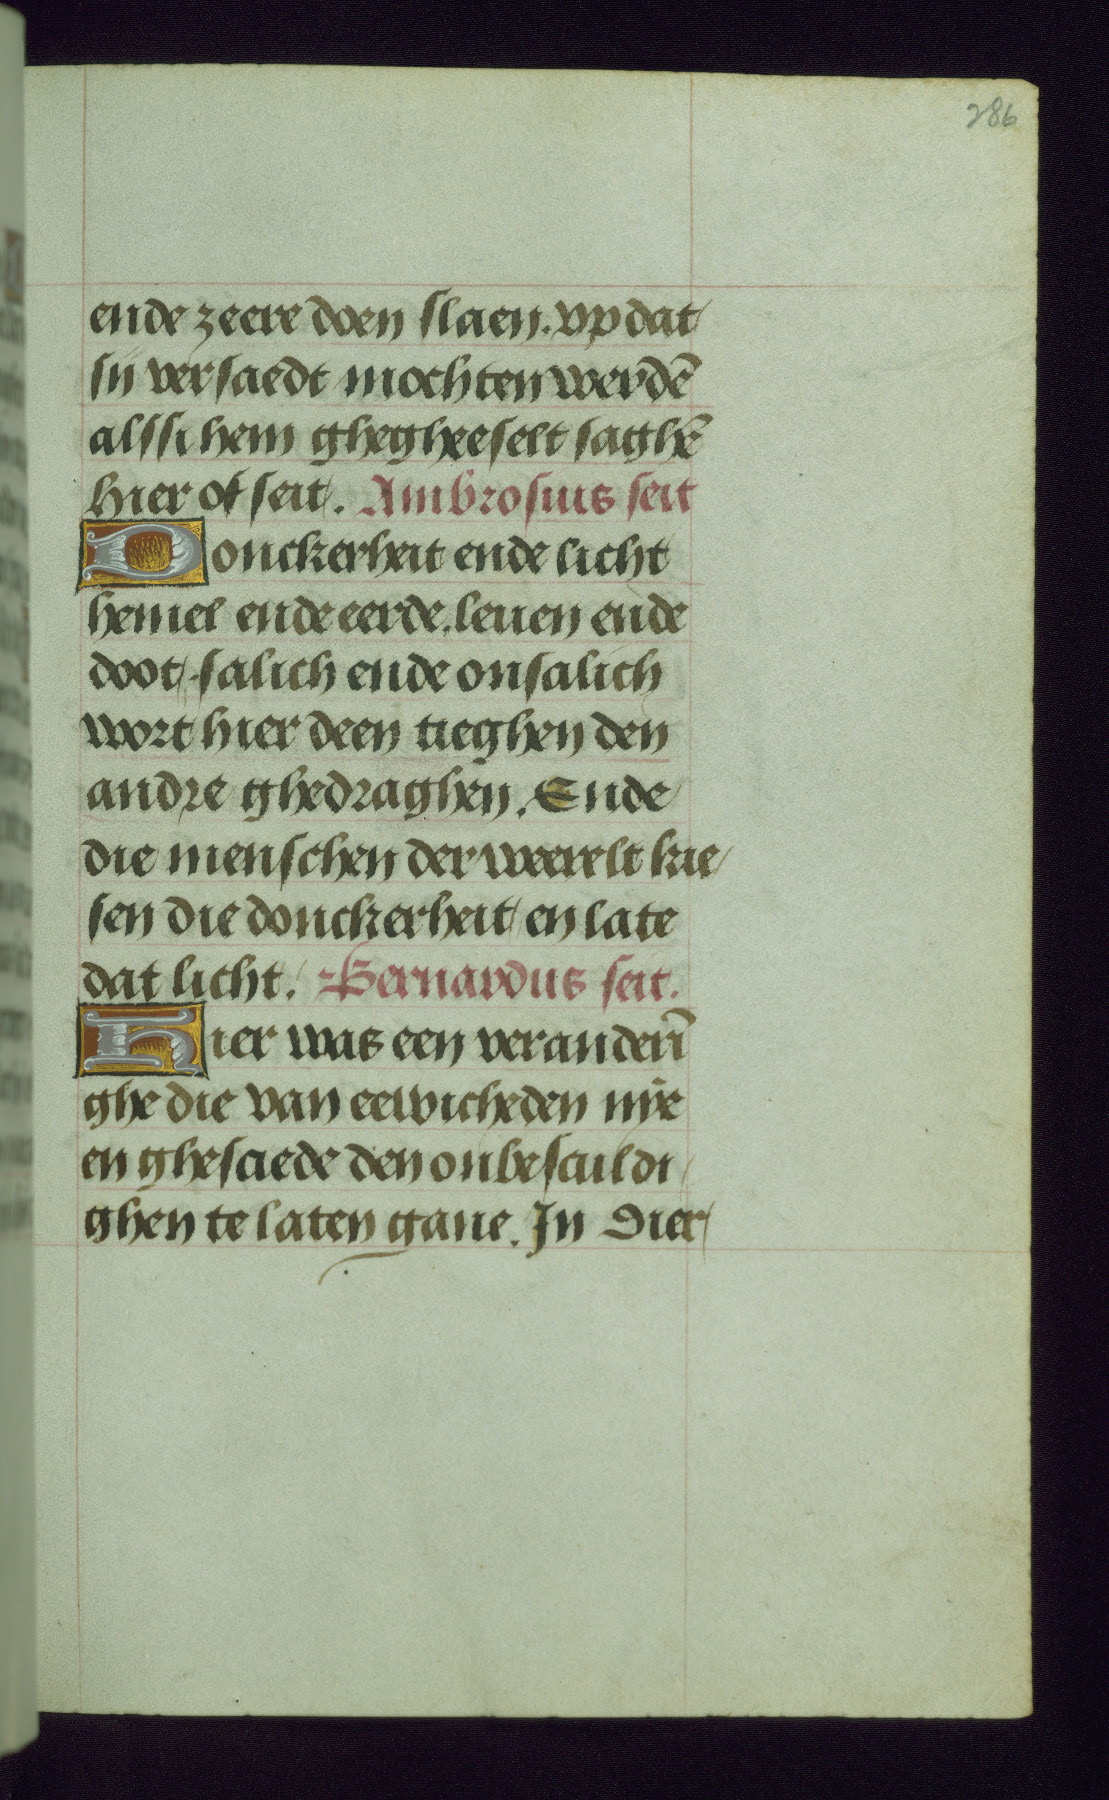 286
ende zeere doen slaen. vp dat
sij versaedt mochten werdē
alssi hem ghegheeselt saghē
hier of seit. Ambrosius seit
Donckerheit ende licht
hemel ende eerde. leuen ende
doot. salich ende onsalich
wort hier deen tieghen den
andre ghedraghen. Ende
die menschen der weerelt kie
sen die donckerheit en late
dat licht. Bernardus seit.
Hier was een veranderī
ghe die van eewicheden nye
en ghesciede den onbesculdi
ghen te laten gane. In dier